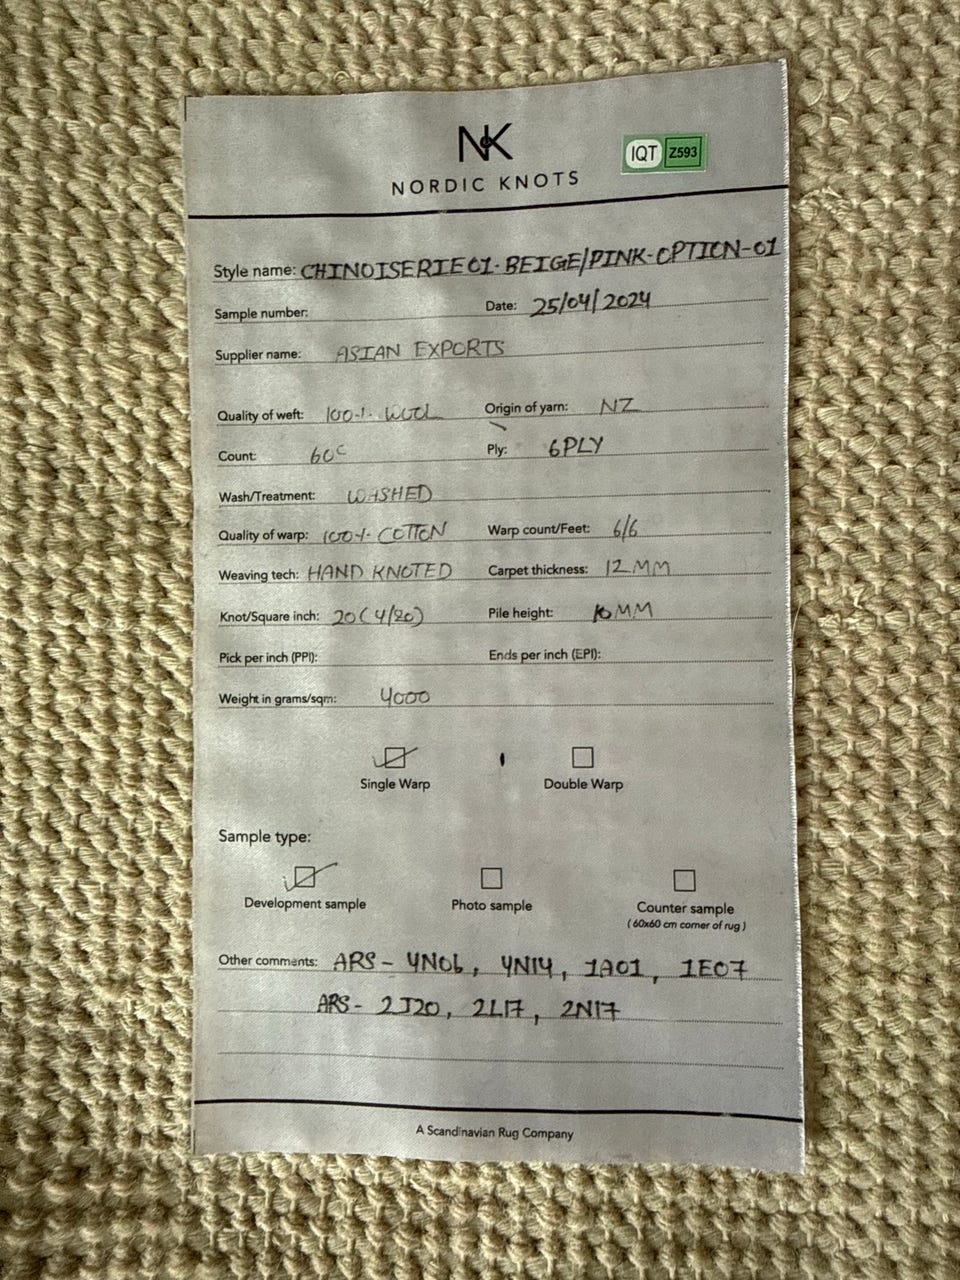 NK
NORDIC KNOTS
IQT Z593
Style name: CHINOISERIE01-BEIGE/PINK-OPTION-01
Sample number: Date: 25/04/2024
Supplier name: ASIAN EXPORTS
Quality of weft: 100% WOOL Origin of yarn: NZ
Count: 60C Ply: 6PLY
Wash/Treatment: WASHED
Quality of warp: 100% COTTON Warp count/Feet: 6/6
Weaving tech: HAND KNOTED Carpet thickness: 12MM
Knot/Square inch: 20(4/20) Pile height: 10MM
Pick per inch (PPI): Ends per inch (EPI):
Weight in grams/sqm: 4000
Single Warp Double Warp
Sample type:
Development sample Photo sample Counter sample
(60x60 cm corner of rug)
Other comments: ARS- 4N06, 4N14, 1A01, 1E07
ARS- 2J20, 2L17, 2N17
A Scandinavian Rug Company